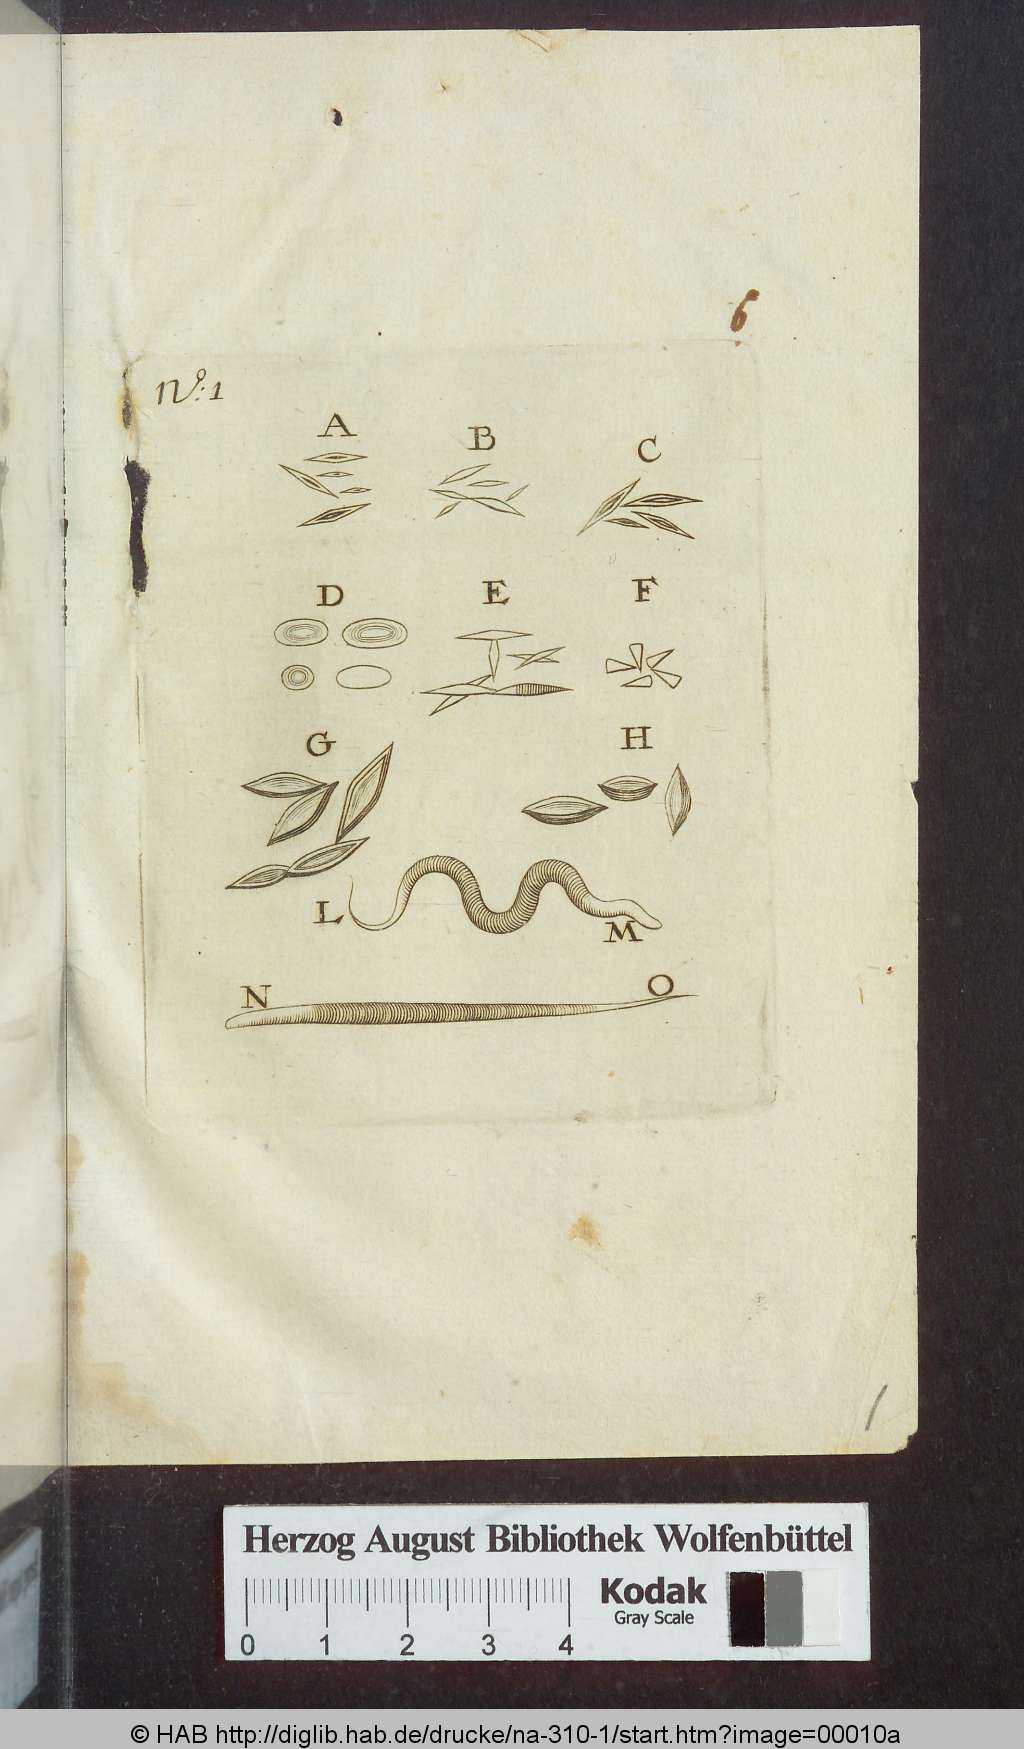 6
N.º 1
A
B
C
D
E
F
G
H
L
M
N
O
Herzog August Bibliothek Wolfenbüttel
Kodak
Gray Scale
0 1 2 3 4
© HAB http://diglib.hab.de/drucke/na-310-1/start.htm?image=00010a